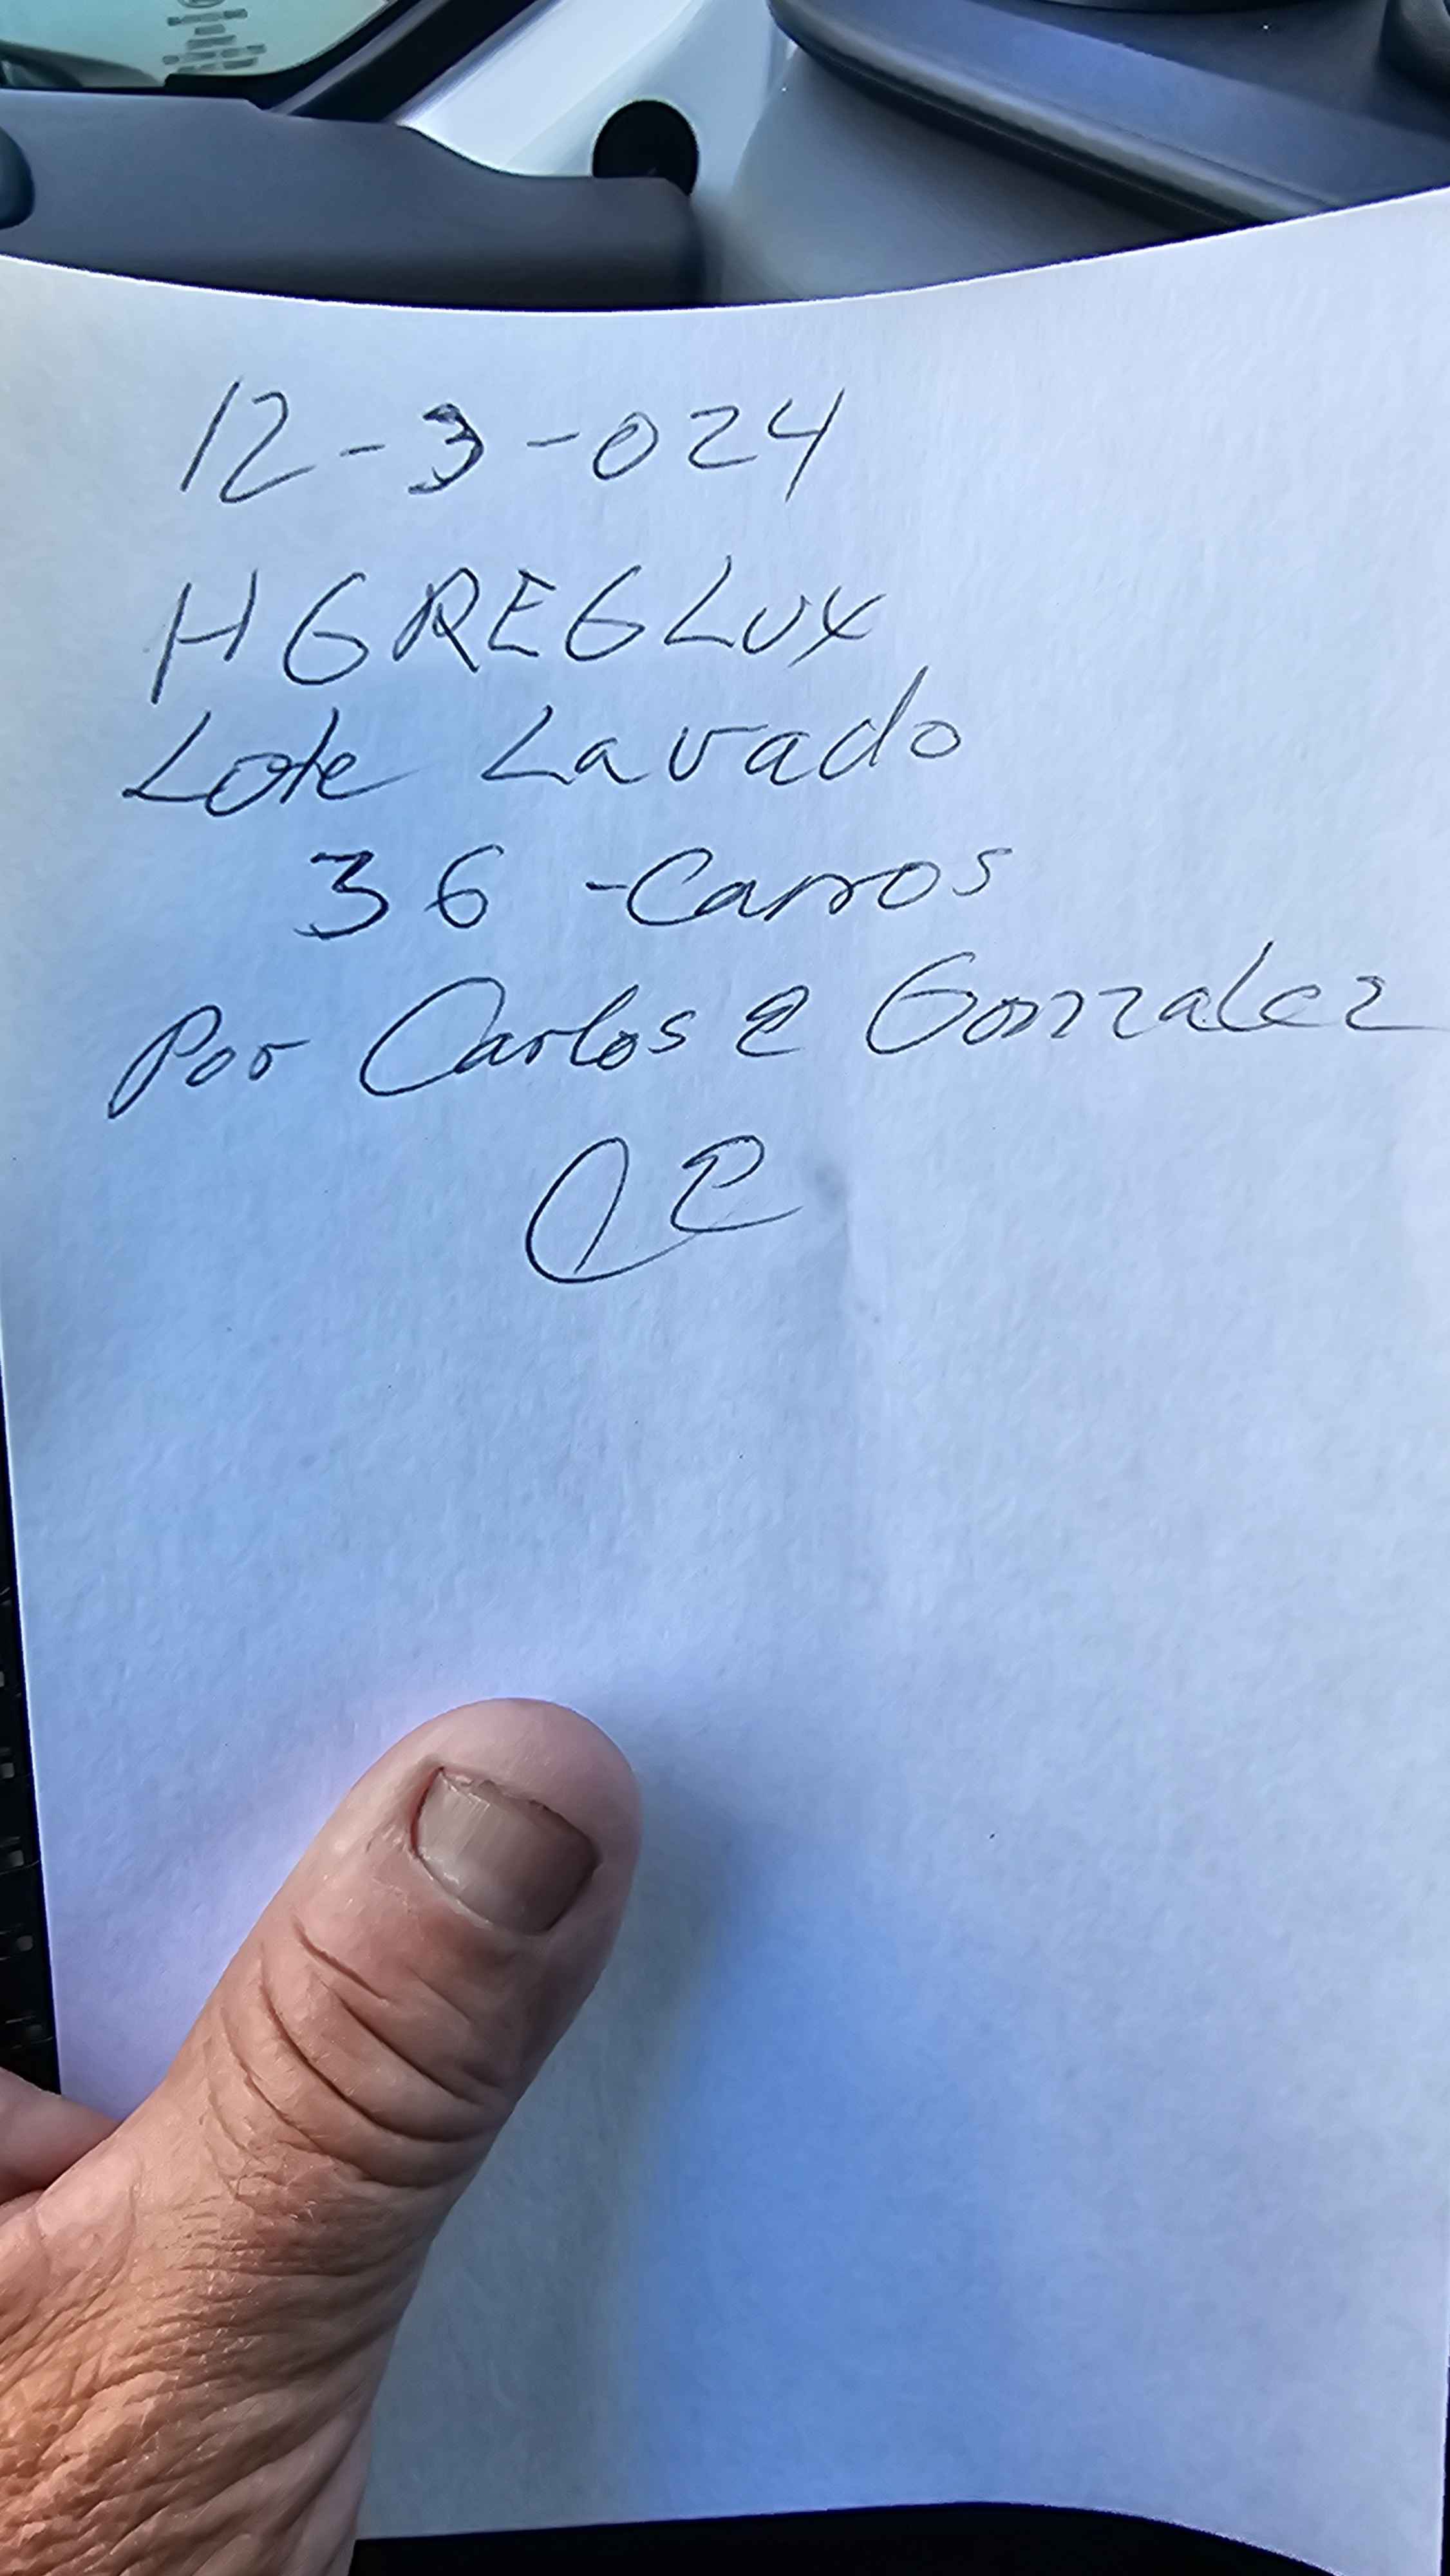 12-3-024
HGREGLUX
Lote Lavado
36 -Carros
Por Carlos E Gonzalez